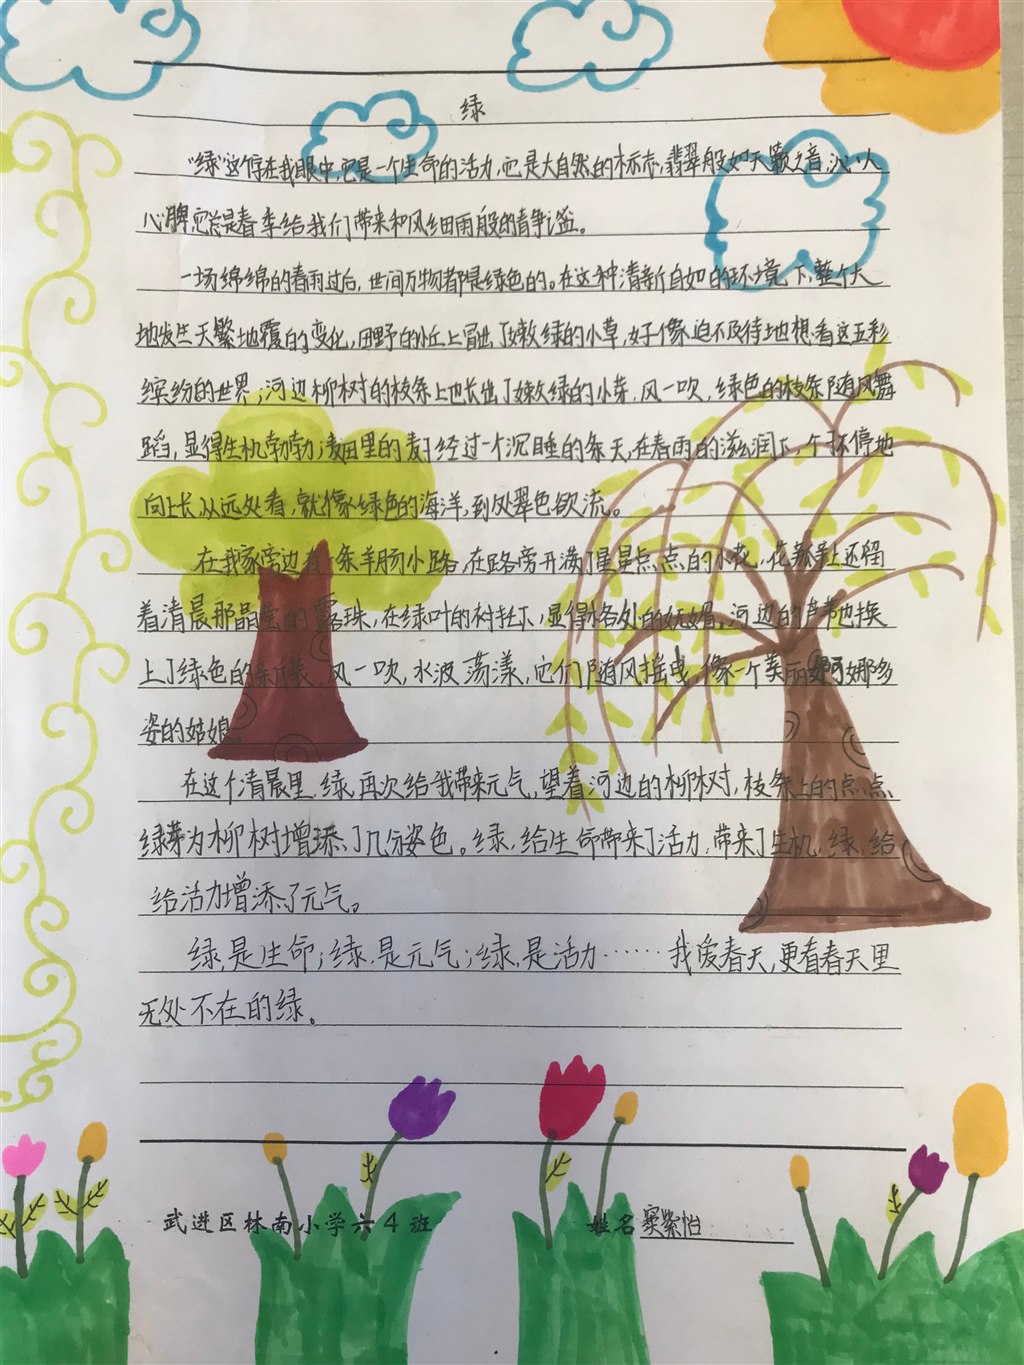 绿
“绿”这个字在我眼中,它是一个生命的活力,它是大自然的标志,翡翠般如天籁之音,沁人
心脾,它总是春季给我们带来和风细雨般的静谧。
一场绵绵的春雨过后,世间万物都是绿色的。在这种清新自如的环境下,整个大
地发生天翻地覆的变化,田野的小丘上冒出了嫩绿的小草,好像迫不及待地想看这五彩
缤纷的世界;河边柳树的枝条上也长出了嫩绿的小芽,风一吹,绿色的枝条随风舞
蹈,显得生机勃勃;麦田里的麦子经过一个沉睡的冬天,在春雨的滋润下,个个不停地
向上长,从远处看,就像绿色的海洋,到处翠色欲流。
在我家旁边有一条羊肠小路,在路旁开满了星星点点的小花,花瓣上还留
着清晨那晶莹的露珠,在绿叶的衬托下,显得格外的妩媚,河边的芦苇也换
上了绿色的新装,风一吹,水波荡漾,它们随风摇曳,像一个美丽婀娜多
姿的姑娘。
在这个清晨里,绿,再次给我带来元气,望着河边的柳树,枝条上的点点
绿芽为柳树增添了几分姿色。绿,给生命带来了活力,带来了生机,绿,给
给活力增添了元气。
绿,是生命;绿,是元气;绿,是活力……我爱春天,更看春天里
无处不在的绿。
武进区林南小学六4班 姓名 窦紫怡